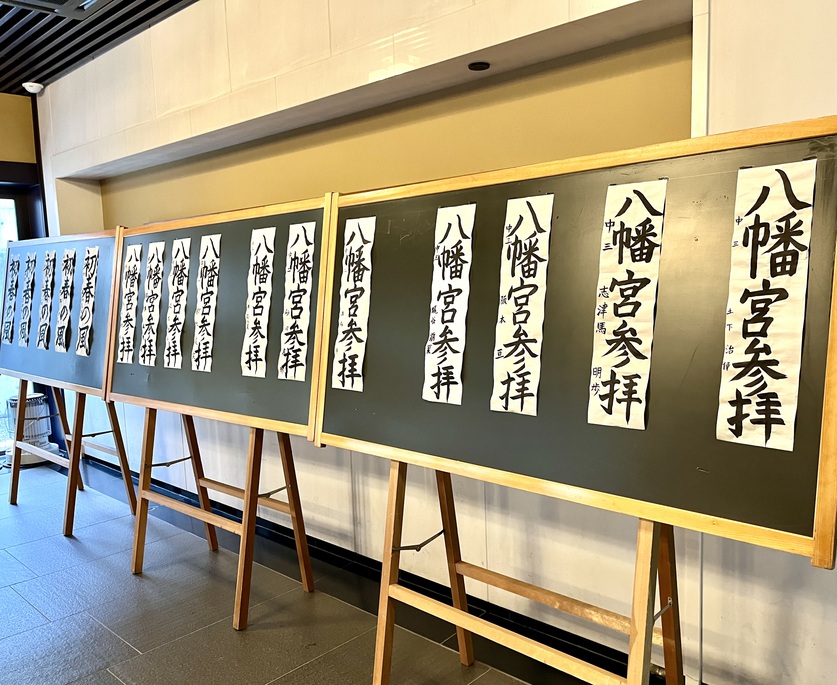 八幡宮参拝
中三
土下 治輝
八幡宮参拝
中三
志津馬 明歩
八幡宮参拝
阪本 亘
八幡宮参拝
八幡宮参拝
八幡宮参拝
八幡宮参拝
八幡宮参拝
八幡宮参拝
八幡宮参拝
八幡宮参拝
初春の風
初春の風
初春の風
初春の風
初春の風